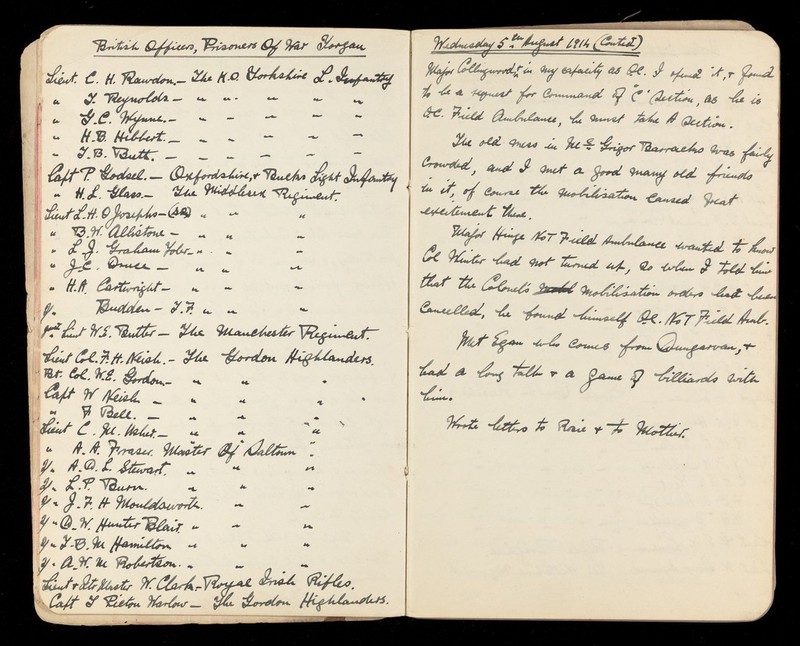 British Officers, Prisoners Of War Torgau
Lieut. C. H. Rawdon. — The K.O. Yorkshire L. Infantry
" T. Reynolds — " " " " "
" G.C. Wynne. — " " " " "
" H.B. Hibbert. — " " " " "
" T.B. Butt. — " " " " "
Capt P. Godsel. — Oxfordshire, & Bucks Light Infantry
" H.L. Glass. — The Middlesex Regiment.
Lieut L.H.O Josephs — " " "
" B.W. Allistone — " " "
" L.J. Graham Toler — " " "
" J.C. Druce — " " "
" H.A. Cartwright — " " "
2/" Budden — T.F. " " "
Lieut W.E. Butter — The Manchester Regiment.
Lieut Col. F.H. Neish. — The Gordon Highlanders.
Bt. Col. W.E. Gordon — " " "
Capt W Neish — " " "
" F Bell. — " " "
Lieut C.M. Usher. — " " "
" A.A. Fraser. Master Of Saltoun "
2/" A.D.L. Stewart. " " "
2/" L.P. Burn. " " "
2/" J.F.H Mouldsworth. " "
2/" D.W. Hunter Blair. " " "
2/" T.B.M Hamilton " " "
2/" A.W.M Robertson. " " "
Lieut & Qtr Master W. Clark — Royal Irish Rifles.
Capt T Picton Warlow — The Gordon Highlanders.
Wednesday 5th August 1914 (Contd)
Major Collingwood, in my capacity as O.C. I opened it, & found
to be a request for command of "C" Section, as he is
O.C. Field Ambulance, he must take A Section.
The old mess in McGrigor Barracks was fairly
crowded, and I met a good many old friends
in it, of course the mobilisation caused great
excitement there.
Major Hinge No 7 Field Ambulance wanted to know
Col Winter had not turned up, so when I told him
that the Colonel's mobilisation orders had been
cancelled, he found himself O.C. No 7 Field Amb.
Met Egan who comes from Dungarvan, &
had a long talk & a game of billiards with
him.
Wrote letters to Rosie & to Mother.